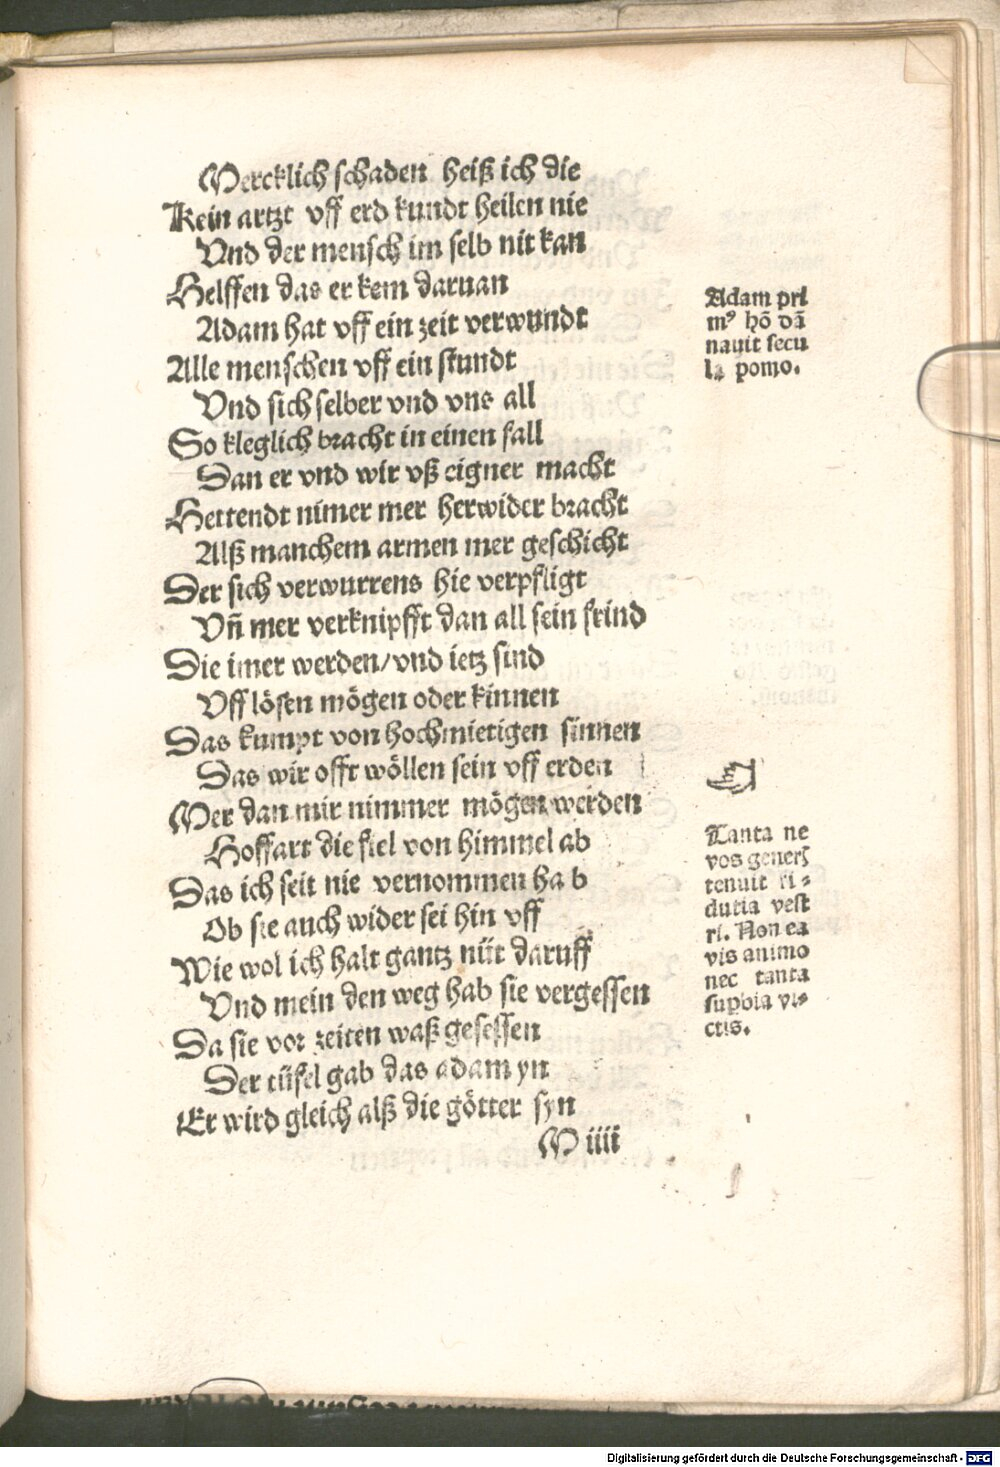 Mercklich schaden heiß ich die
Kein artzt vff erd kundt heilen nie
Vnd der mensch im selb nit kan
Helffen das er kem daruan
Adam hat vff ein zeit verwundt
Alle menschen vff ein stundt
Vnd sich selber vnd vns all
So kleglich bracht in einen fall
Dan er vnd wir vß eigner macht
Hettendt nimer mer herwider bracht
Alß manchem armen mer geschicht
Der sich verwurrens hie verpfligt
Vñ mer verknipfft dan all sein frind
Die imer werden/vnd ietz sind
Vff lösen mögen oder kinnen
Das kumpt von hochmietigen sinnen
Das wir offt wöllen sein vff erden
Mer dan mir nimmer mögen werden
Hoffart die fiel von himmel ab
Das ich seit nie vernommen hab
Ob sie auch wider sei hin vff
Wie wol ich halt gantz nüt daruff
Vnd mein den weg hab sie vergessen
Da sie vor zeiten waß gesessen
Der tüfel gab das adam yn
Er wird gleich alß die götter syn
M iiii
Adam pri
mꝰ hō dā
nauit secu
la pomo.
Tanta ne
vos generꝭ
tenuit fi-
ducia vest
ri. Non ea
vis animo
nec tanta
suꝑbia vi-
ctis.
Digitalisierung gefördert durch die Deutsche Forschungsgemeinschaft - DFG